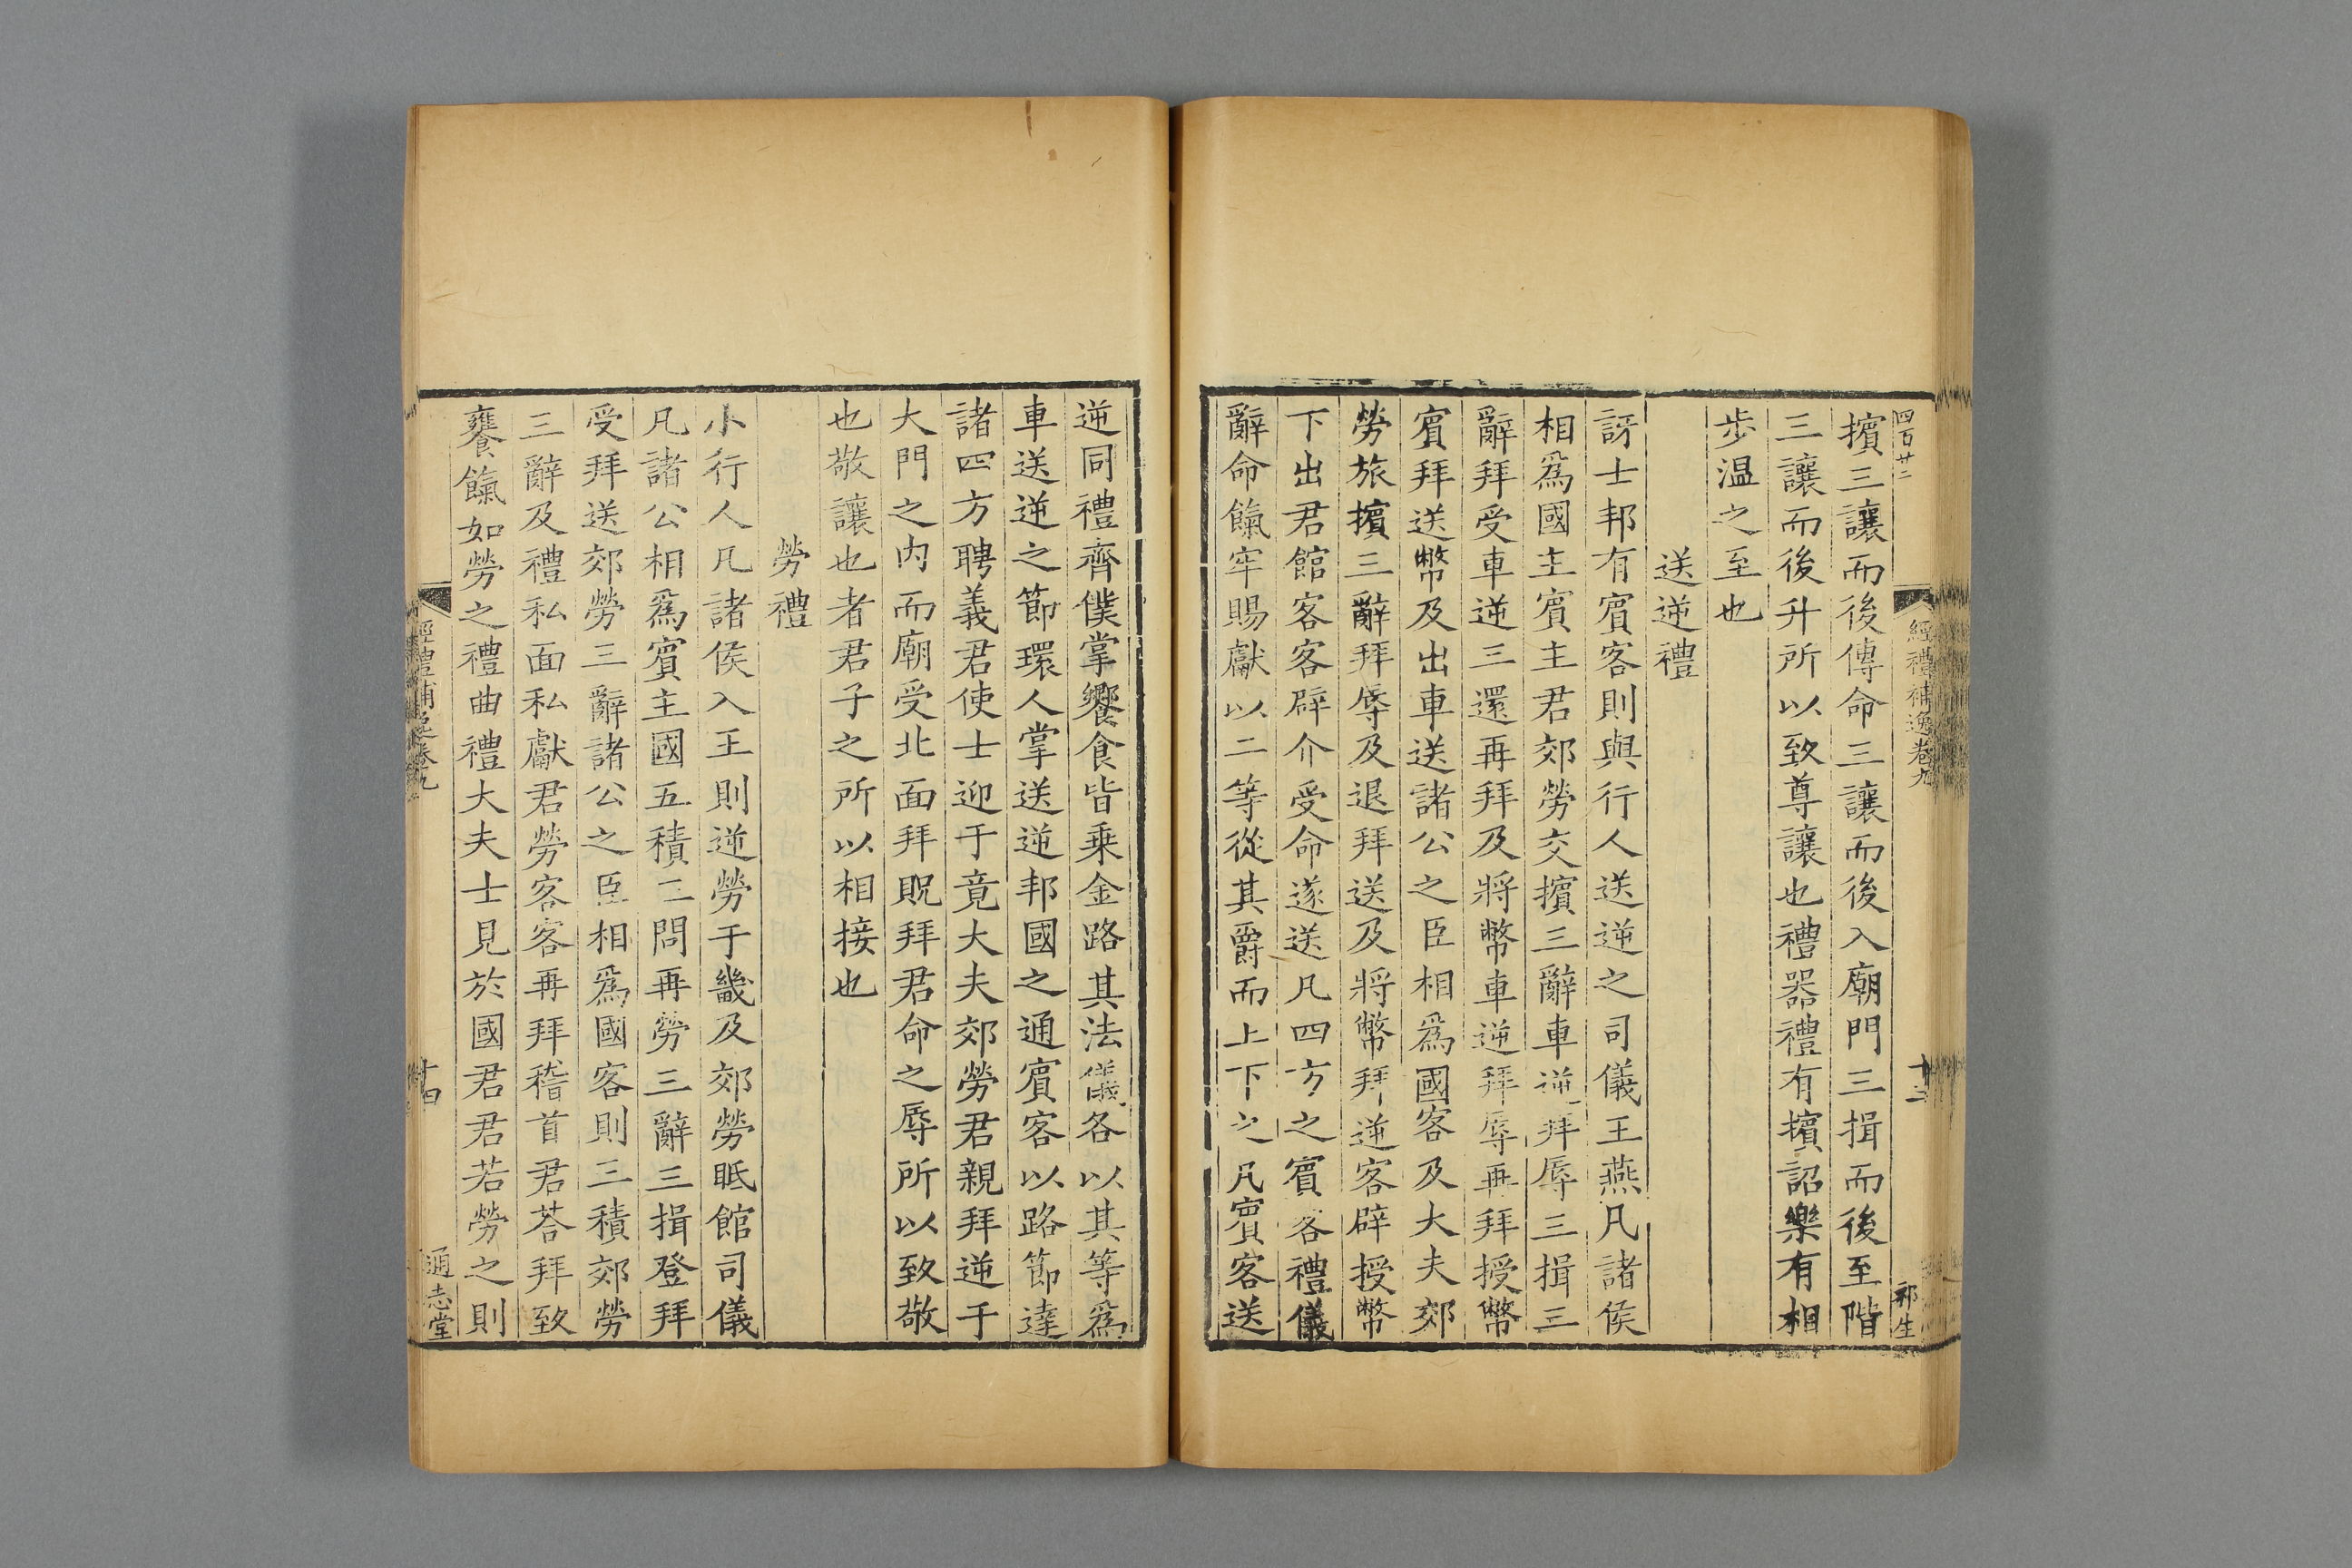 四百廿二
經禮補逸卷九
十三
祁生
擯三讓而後傳命三讓而後入廟門三揖而後至階
三讓而後升所以致尊讓也禮器禮有擯詔樂有相
步温之至也
送逆禮
訝士邦有賓客則與行人送逆之司儀王燕凡諸侯
相爲國主賓主君郊勞交擯三辭車逆拜辱三揖三
辭拜受車逆三還再拜及將幣車逆拜辱再拜授幣
賓拜送幣及出車送諸公之臣相爲國客及大夫郊
勞旅擯三辭拜辱及退拜送及將幣拜逆客辟授幣
下出君館客客辟介受命遂送凡四方之賓客禮儀
辭命餼牢賜獻以二等從其爵而上下之凡賓客送
逆同禮齊僕掌饗食皆乗金路其法儀各以其等爲
車送逆之節環人掌送逆邦國之通賓客以路節達
諸四方聘義君使士迎于竟大夫郊勞君親拜逆于
大門之内而廟受北面拜貺拜君命之辱所以致敬
也敬讓也者君子之所以相接也
勞禮
小行人凡諸侯入王則逆勞于畿及郊勞眂館司儀
凡諸公相爲賓主國五積三問再勞三辭三揖登拜
受拜送郊勞三辭諸公之臣相爲國客則三積郊勞
三辭及禮私面私獻君勞客客再拜稽首君荅拜致
饔餼如勞之禮曲禮大夫士見於國君君若勞之則
經禮補逸卷九
十四
通志堂